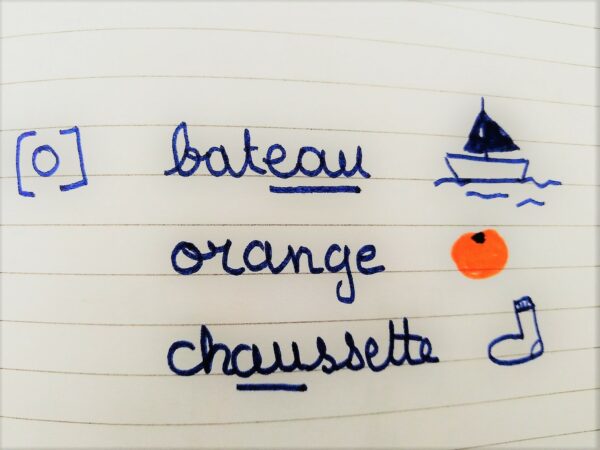 [o] bateau
orange
chaussette